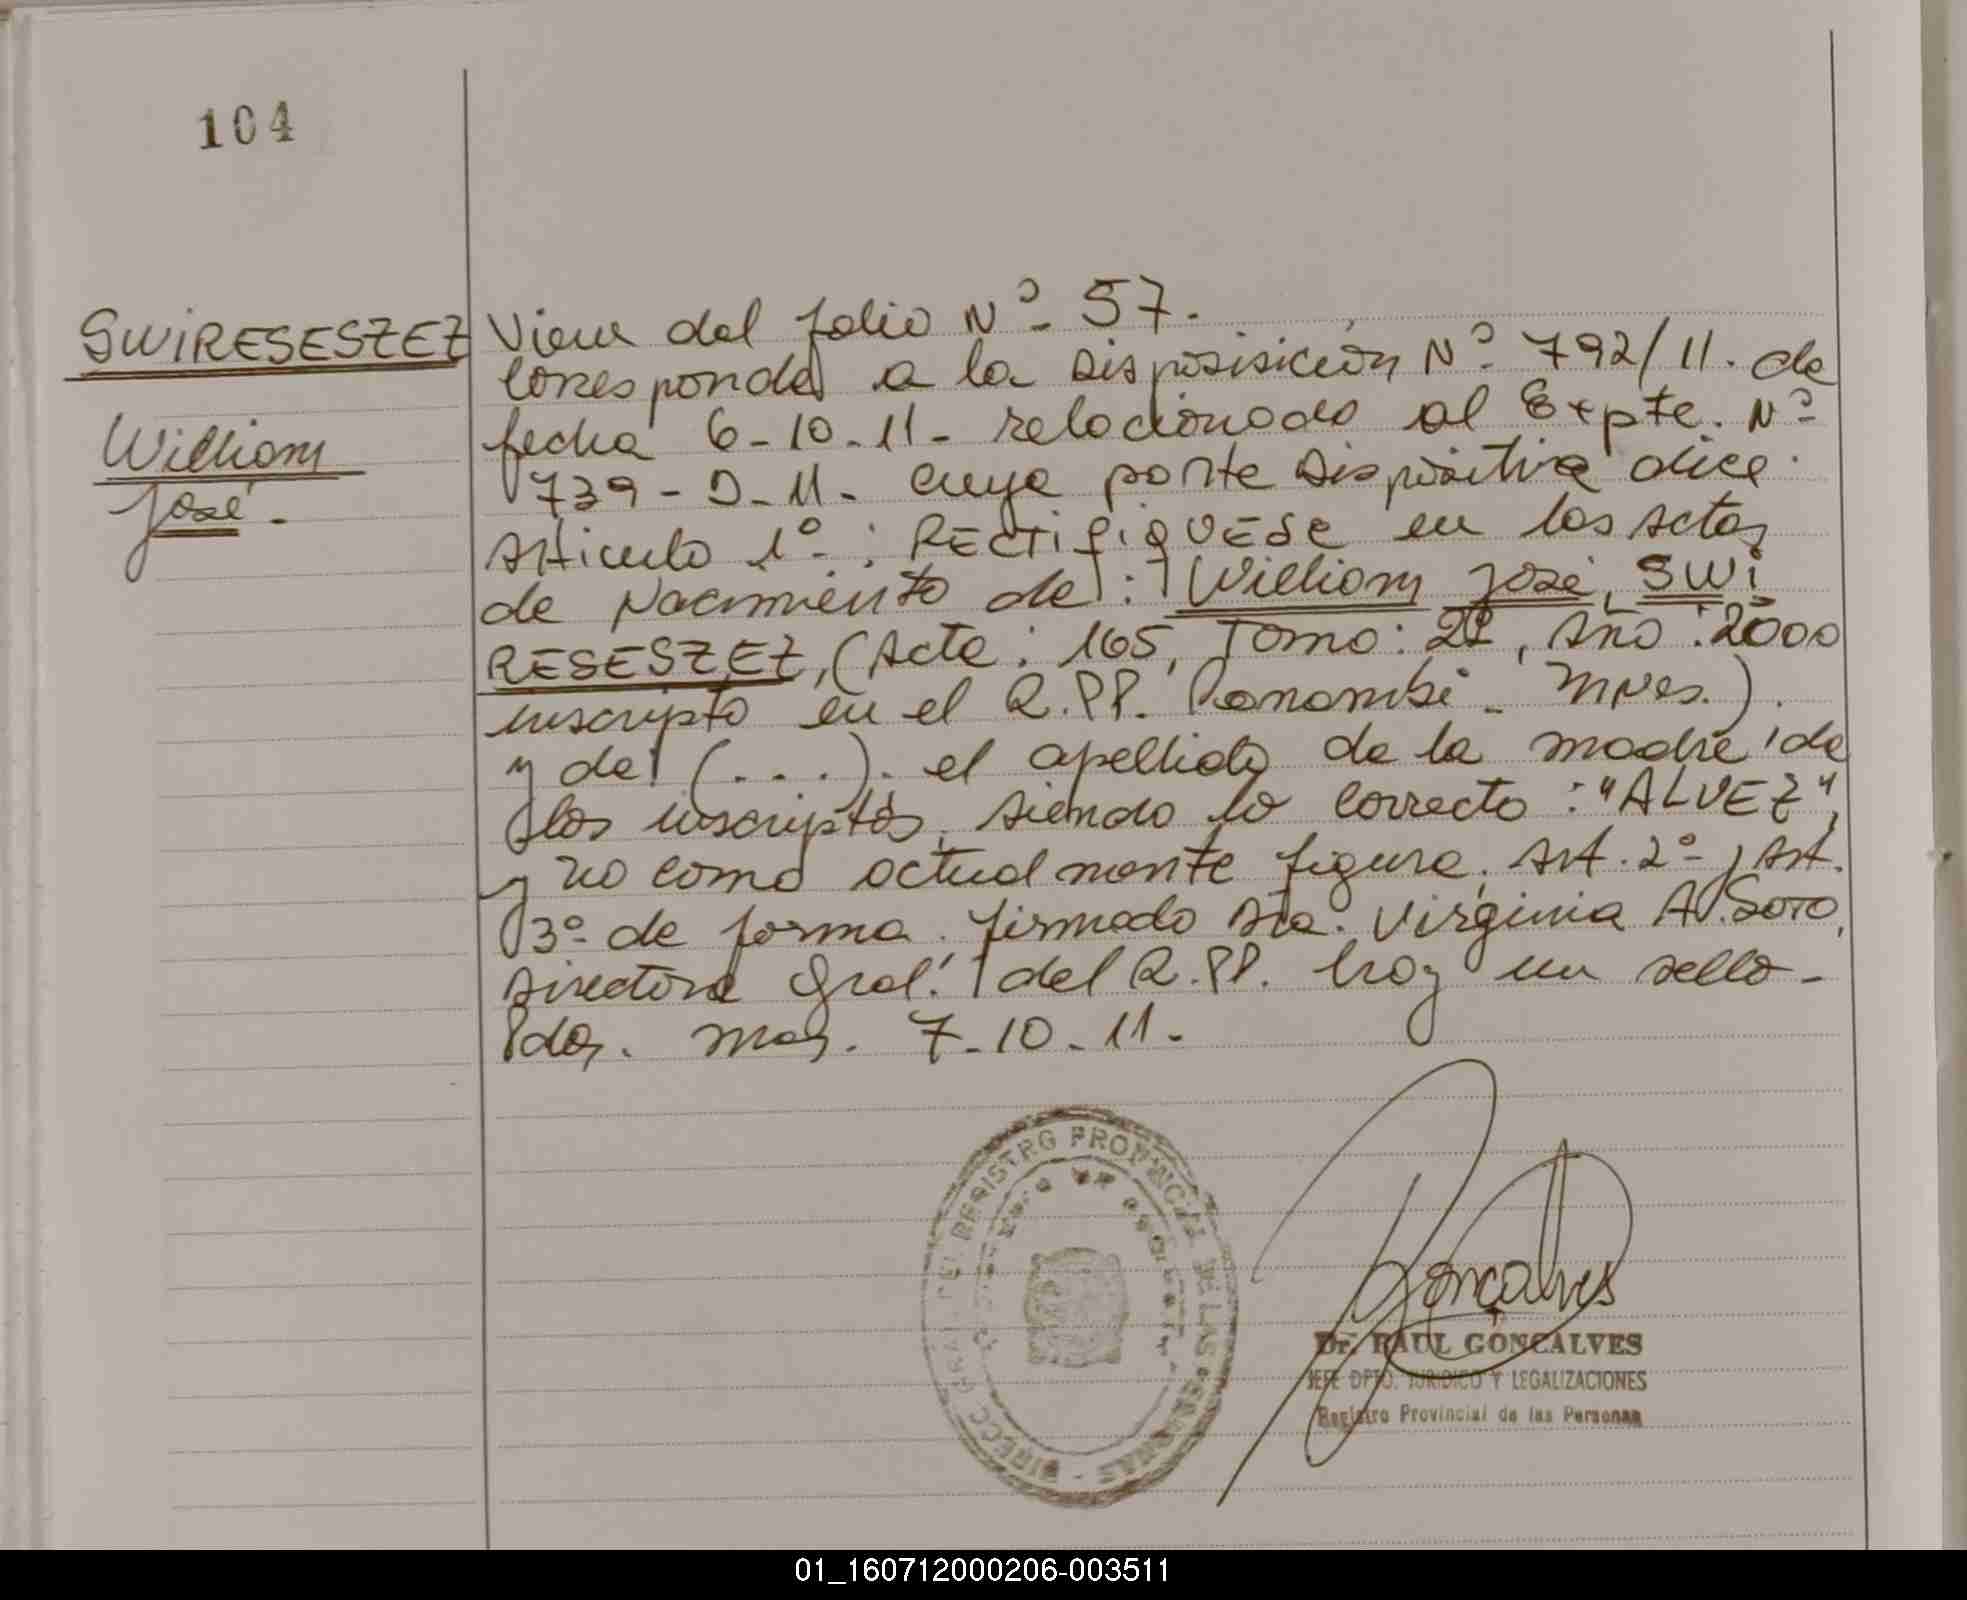 104
SWIRESESZEZ
William
José.-
Viene del folio Nº- 57.-
Corresponde a la Disposisición Nº- 792/11. de
fecha 6-10-11- relacionado al Expte. Nº-
739-D-11- cuya parte Dispositiva dice:
Artículo 1º-: RECTIFIQUESE en las Actas
de Nacimiento de: William José, SWI
RESESZEZ, (Acta: 165, Tomo: 2º, Año: 2000
inscripto en el R.PP. Panambí - Mnes.)
y de (....). el apellido de la madre de
los inscriptos, siendo lo correcto: "ALVEZ",
y no como actualmente figura. Art. 2º- y Art.
3º- de forma. firmado Sra. Virginia A. Soto,
Directora Gral. del R.PP. hay un sello-
Pdas. Mnes. 7-10-11-
DIRECC. GRAL. DEL REGISTRO PROVINCIAL DE LAS PERSONAS -
Goncalves
Dr. RAUL GONCALVES
JEFE DPTO. JURIDICO Y LEGALIZACIONES
Registro Provincial de las Personas
01_160712000206-003511